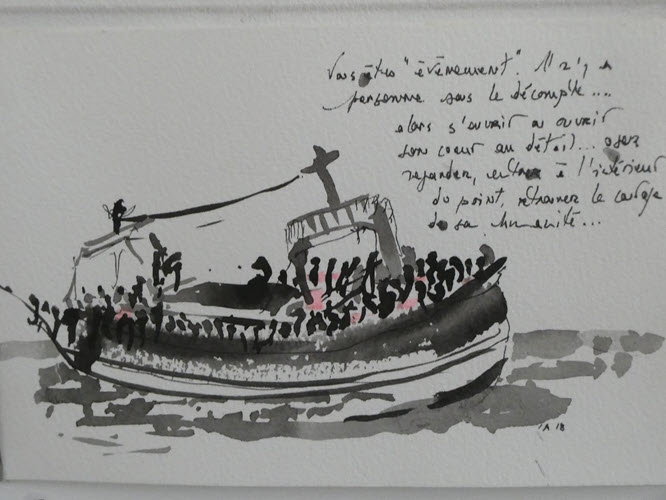 Vous êtes "évènement". Il n'y a
personne sous le décompte...
alors s'ouvrir ou ouvrir
son coeur au détail... oser
regarder, entrer à l'intérieur
du point, retrouver le courage
de sa humanité...
A 18